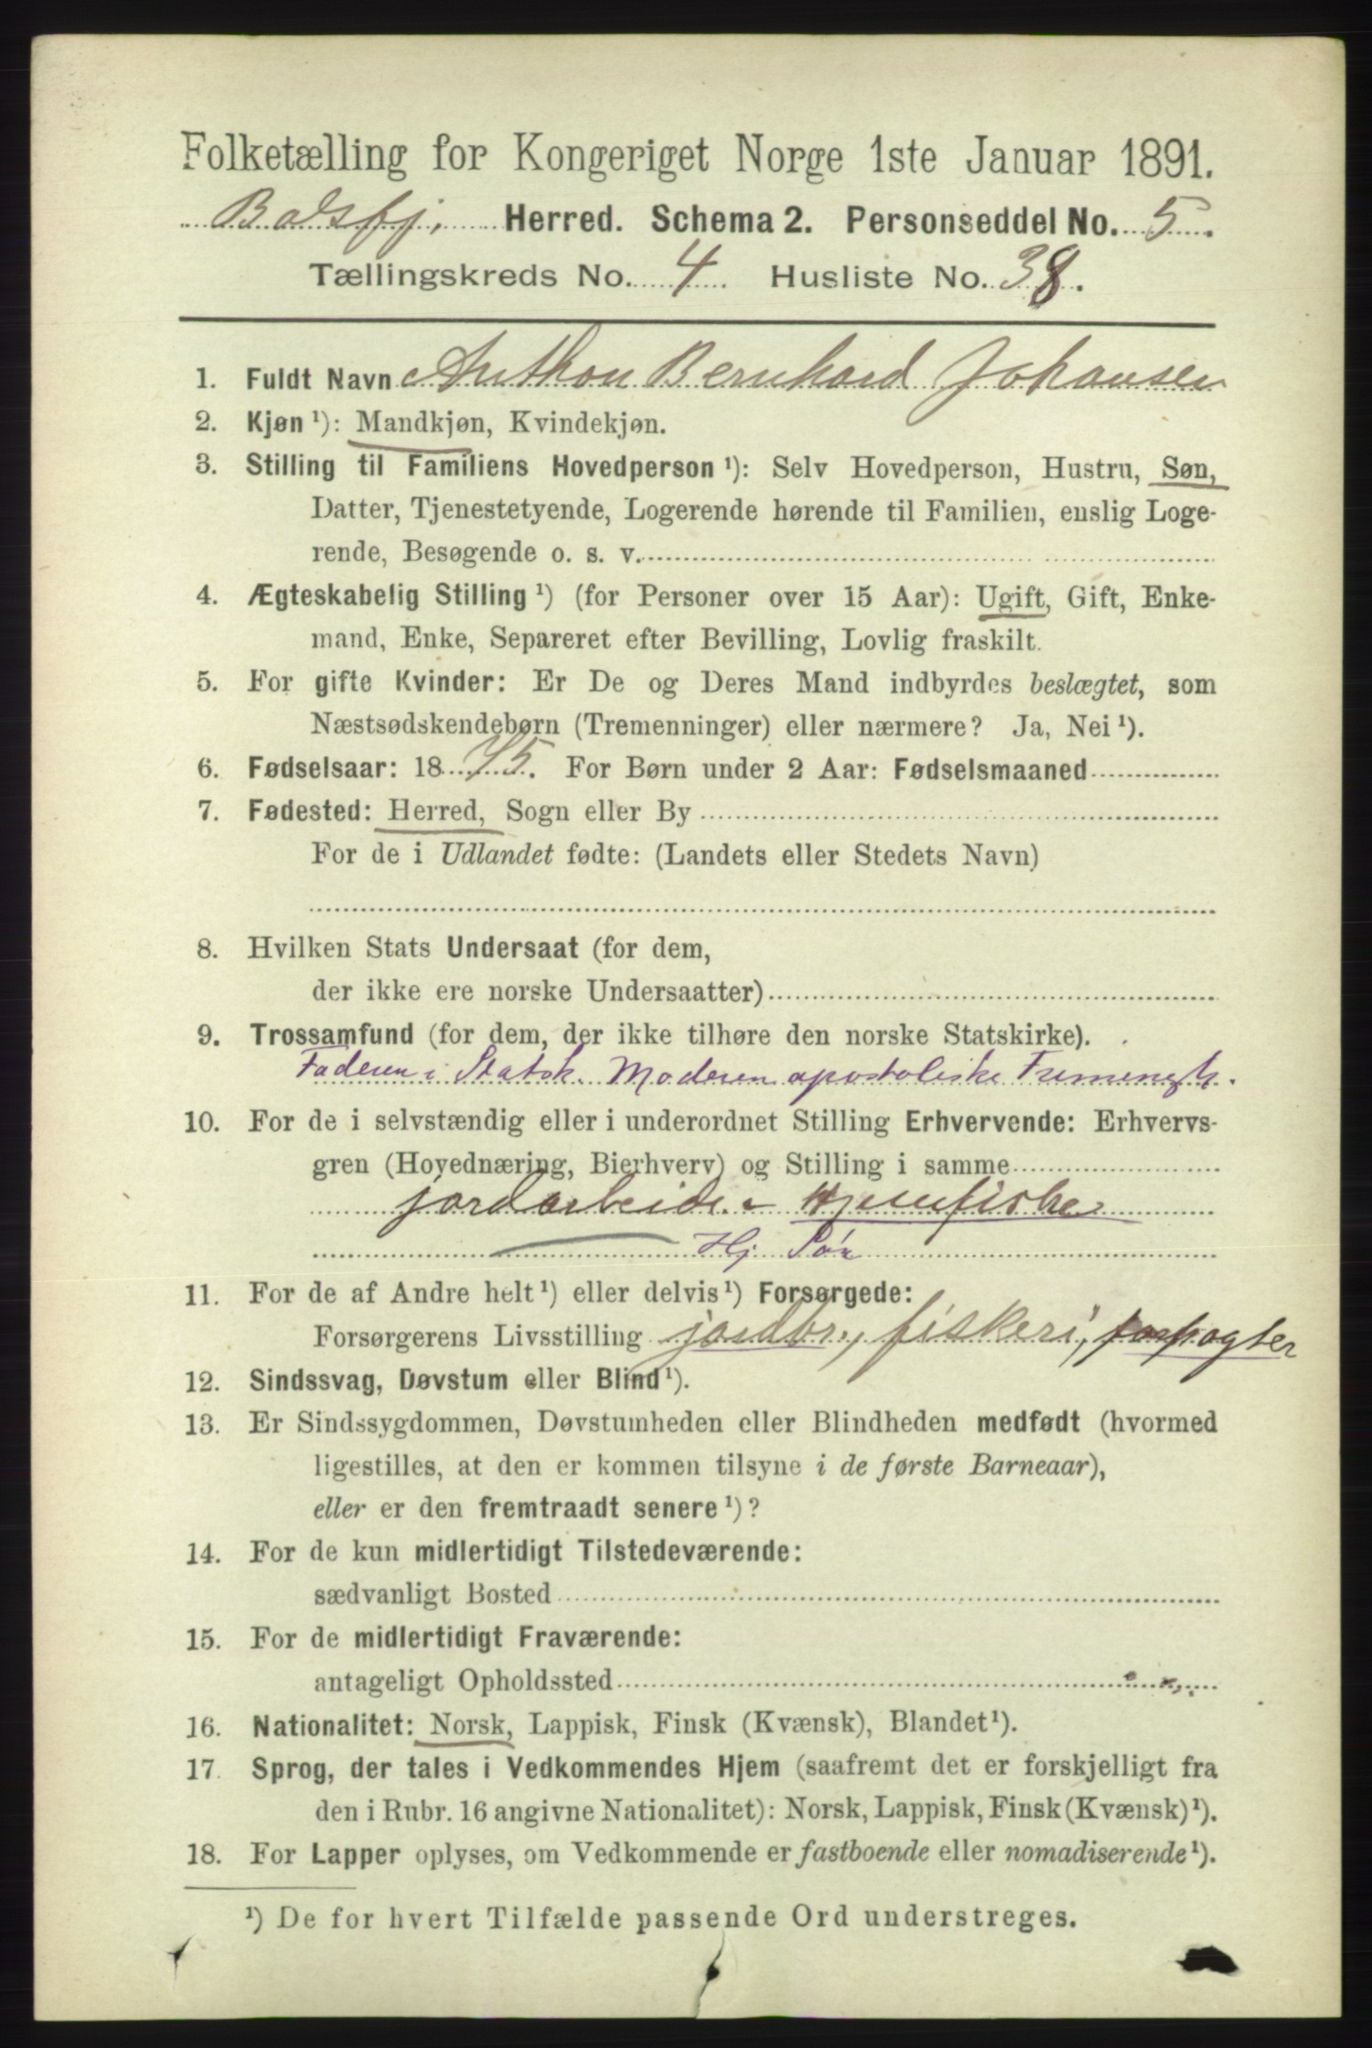 Folketælling for Kongeriget Norge 1ste Januar 1891.
Balsfj. Herred. Schema 2. Personseddel No. 5.
Tællingskreds No. 4 Husliste No. 38.
1. Fuldt Navn Anthon Bernhard Johansen
2. Kjøn ¹): Mandkjøn, Kvindekjøn.
3. Stilling til Familiens Hovedperson ¹): Selv Hovedperson, Hustru, Søn,
Datter, Tjenestetyende, Logerende hørende til Familien, enslig Loge-
rende, Besøgende o. s. v.
4. Ægteskabelig Stilling ¹) (for Personer over 15 Aar): Ugift, Gift, Enke-
mand, Enke, Separeret efter Bevilling, Lovlig fraskilt.
5. For gifte Kvinder: Er De og Deres Mand indbyrdes beslægtet, som
Næstsødskendebørn (Tremenninger) eller nærmere? Ja, Nei ¹).
6. Fødselsaar: 1875. For Børn under 2 Aar: Fødselsmaaned
7. Fødested: Herred, Sogn eller By
For de i Udlandet fødte: (Landets eller Stedets Navn)
8. Hvilken Stats Undersaat (for dem,
der ikke ere norske Undersaatter)
9. Trossamfund (for dem, der ikke tilhøre den norske Statskirke).
Faderen i Statsk. Moderen apostoliske Frimenigh.
10. For de i selvstændig eller i underordnet Stilling Erhvervende: Erhvervs-
gren (Hovednæring, Bierhverv) og Stilling i samme
jordarbeide Hjemfiske
Hj Søn
11. For de af Andre helt ¹) eller delvis ¹) Forsørgede:
Forsørgerens Livsstilling jordbr., fiskeri,
12. Sindssvag, Døvstum eller Blind ¹).
13. Er Sindssygdommen, Døvstumheden eller Blindheden medfødt (hvormed
ligestilles, at den er kommen tilsyne i de første Barneaar),
eller er den fremtraadt senere ¹)?
14. For de kun midlertidigt Tilstedeværende:
sædvanligt Bosted
15. For de midlertidigt Fraværende:
antageligt Opholdssted
16. Nationalitet: Norsk, Lappisk, Finsk (Kvænsk), Blandet ¹).
17. Sprog, der tales i Vedkommendes Hjem (saafremt det er forskjelligt fra
den i Rubr. 16 angivne Nationalitet): Norsk, Lappisk, Finsk (Kvænsk) ¹).
18. For Lapper oplyses, om Vedkommende er fastboende eller nomadiserende ¹).
¹) De for hvert Tilfælde passende Ord understreges.